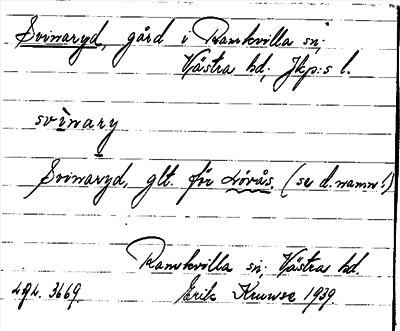 Svinaryd, gård i Ramkvilla sn;
Västra hd; Jkp:s l.
svìnary
Svinaryd, glt. för Lövås. (se d. namn!)
Ramkvilla sn; Västra hd.
Erik Kruuse 1939.